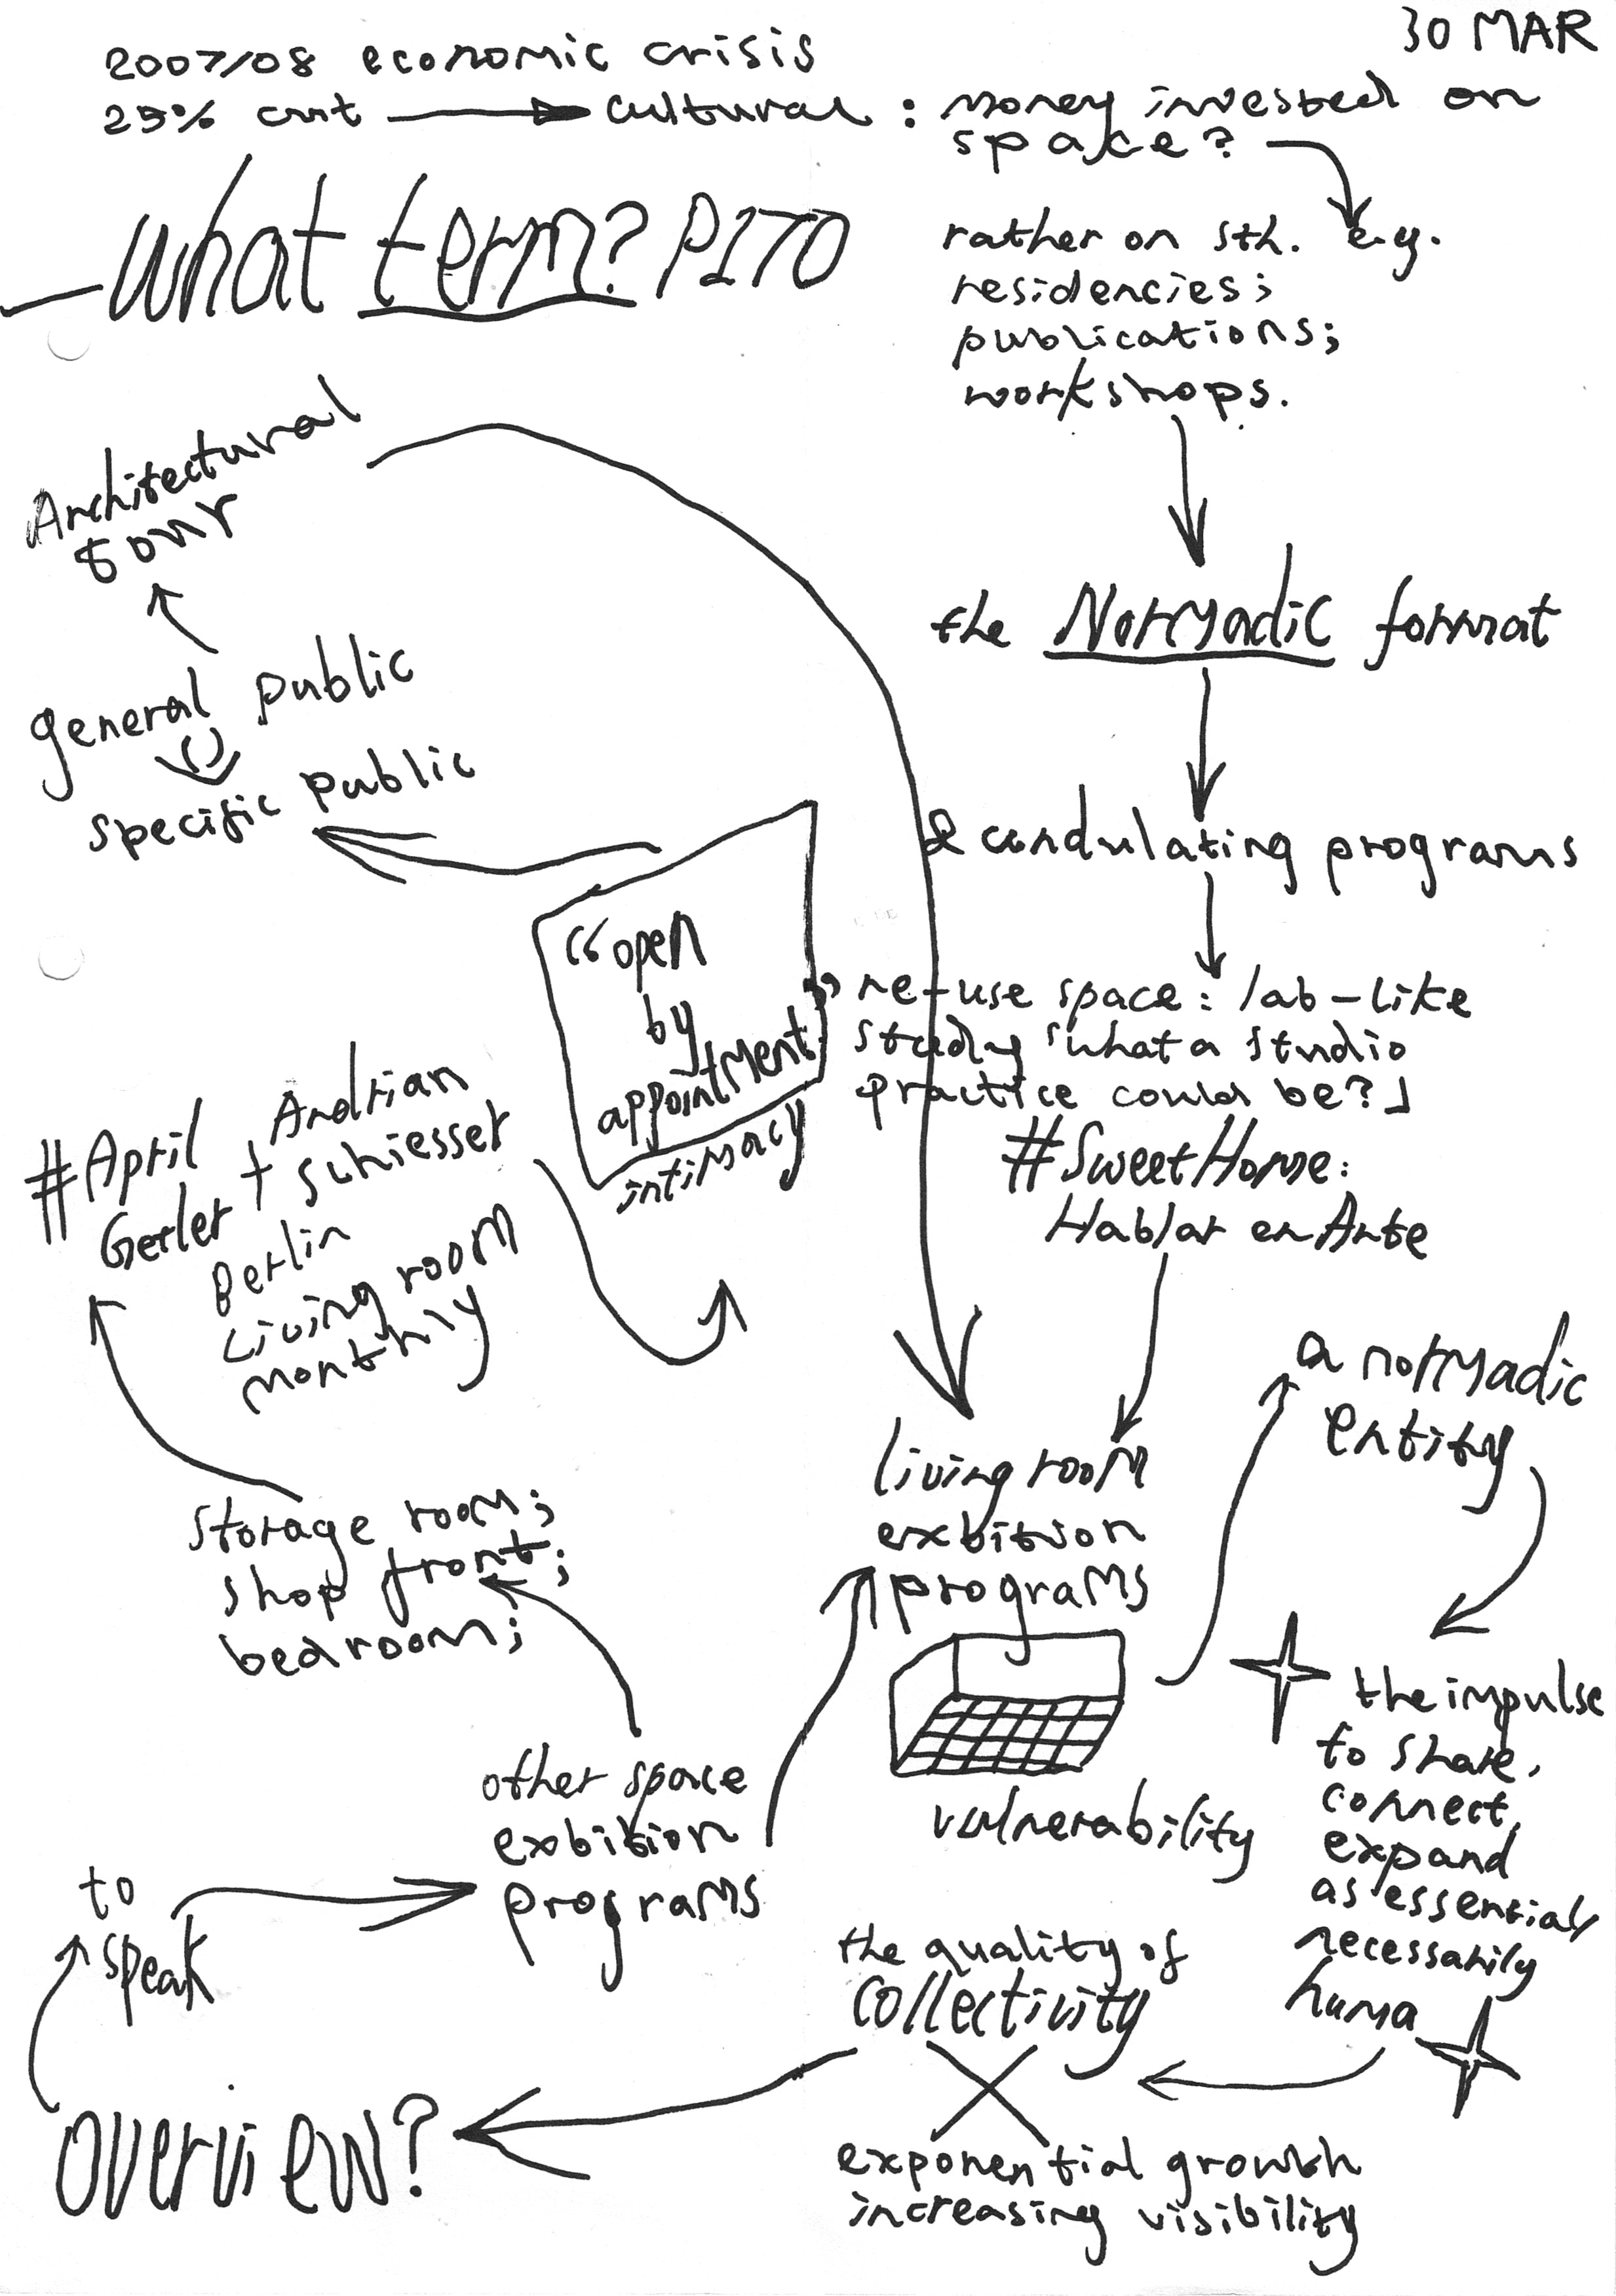 30 MAR
2007/08 economic crisis
25% cut → cultural : money invested on
space?
e.g.
rather on sth.
residencies;
publications;
workshops.
what term? P170
Architectural
tour
general public
specific public
the Normadic format
& undulating programs
"open
by
appointment"
intimacy
re-use space: lab-like
studying 「what a studio
practice could be?」
#SweetHome:
Hablar en Arte
#April
Gerler + Andrian
Schiesser
Berlin
Living room
monthly
a normadic
entity
living room
exbition
programs
vulnerability
storage room;
shop front;
bedroom;
other space
exbition
programs
to
speak
the impulse
to share,
connect,
expand
as essential,
necessarily
huma
the quality of
collectivity
exponential growth
increasing visibility
overview?